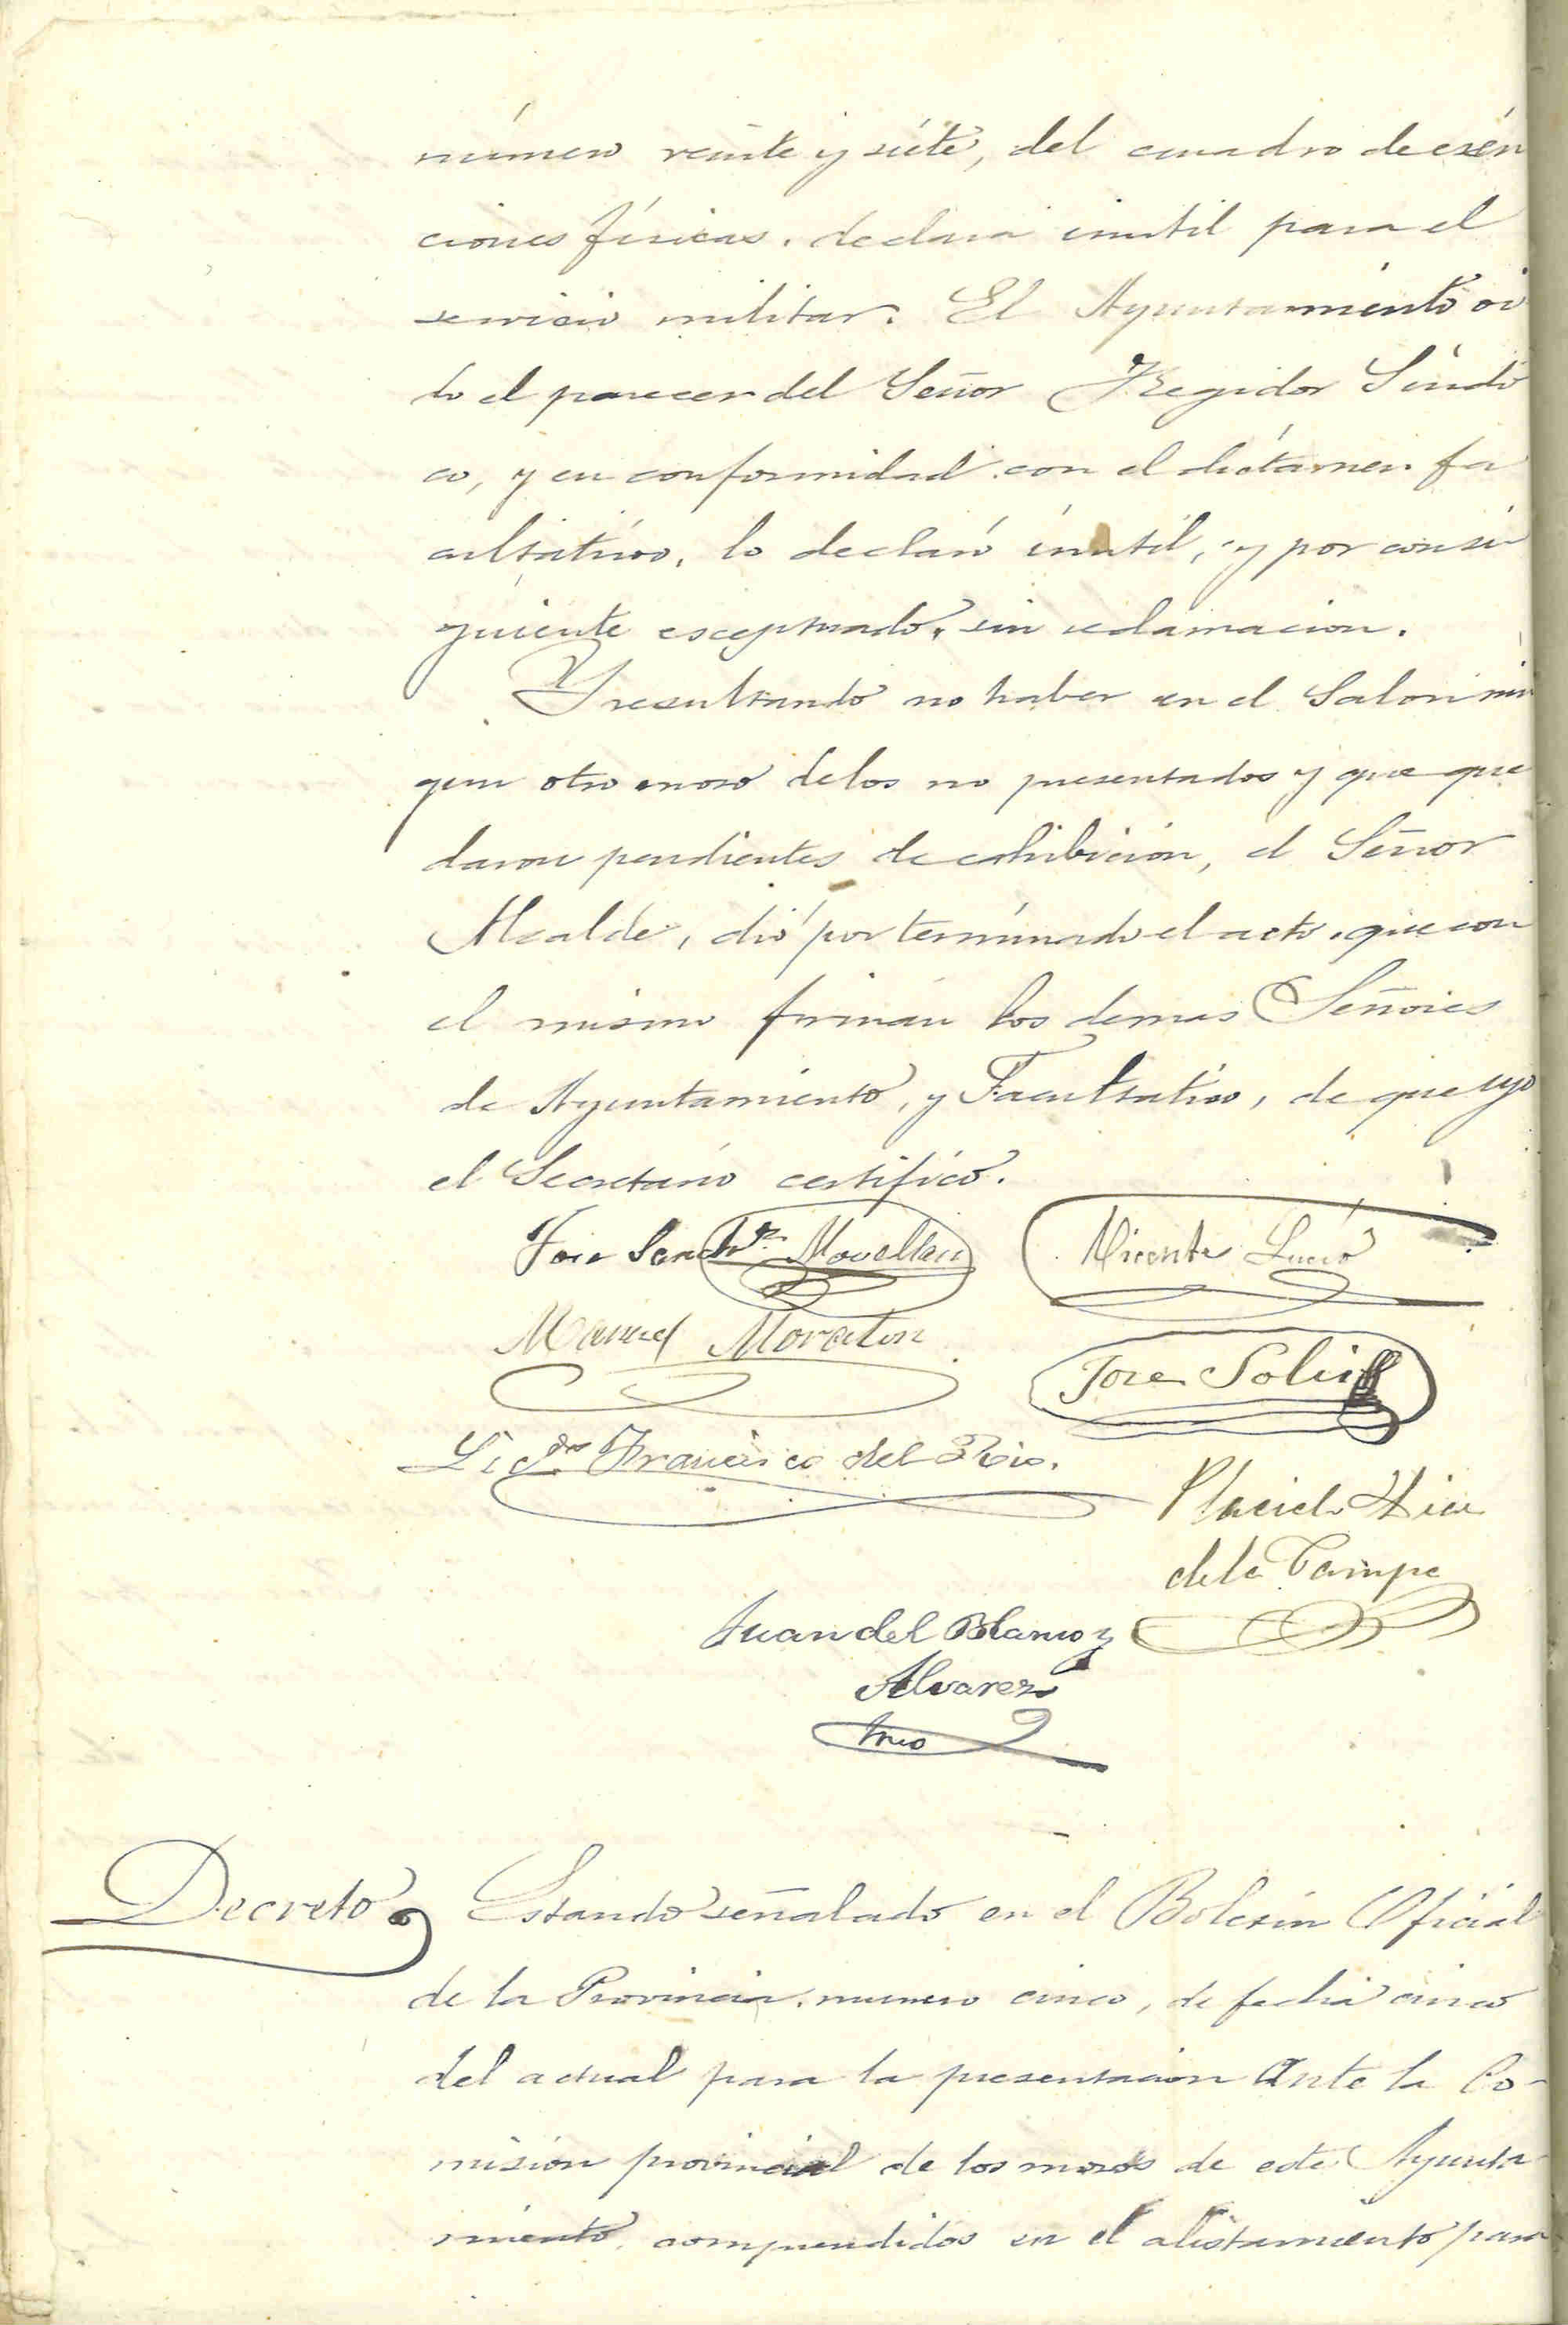 número veinte y siéte, del cuadro de exén
ciones físicas, declara inutil para el
servicio militar. El Ayuntamiento oi
do el parecer del Señor Regidor Sindi
co, y en conformidad con el dictámen fa
cultativo, lo declaró inutil, y por consi
guiente esceptuado, sin reclamacion.
Y resultando no haber en el Salon nin
gun otro mozo delos no presentados y que que
daron pendientes de exhibicion, el Señor
Alcalde, dió por terminado el acto, que con
el mismo firman los demas Señores
de Ayuntamiento, y Facultativo, de que yo
el Secretario certifico.
José Sanchz. Movellan Vicente Lucio
Manuel Moraton
Jose Solis
Licdo Francisco del Rio.
Placido
dela Campa
Juan del Blanco y
Alvarez
Srio
Decreto Estando señalado en el Boletin Oficial
de la Provincia, numero cinco, de fecha cinco
del actual para la presentacion ante la Co-
mision provincial de los mozos de este Ayunta
miento, comprendidos en el alistamiento para